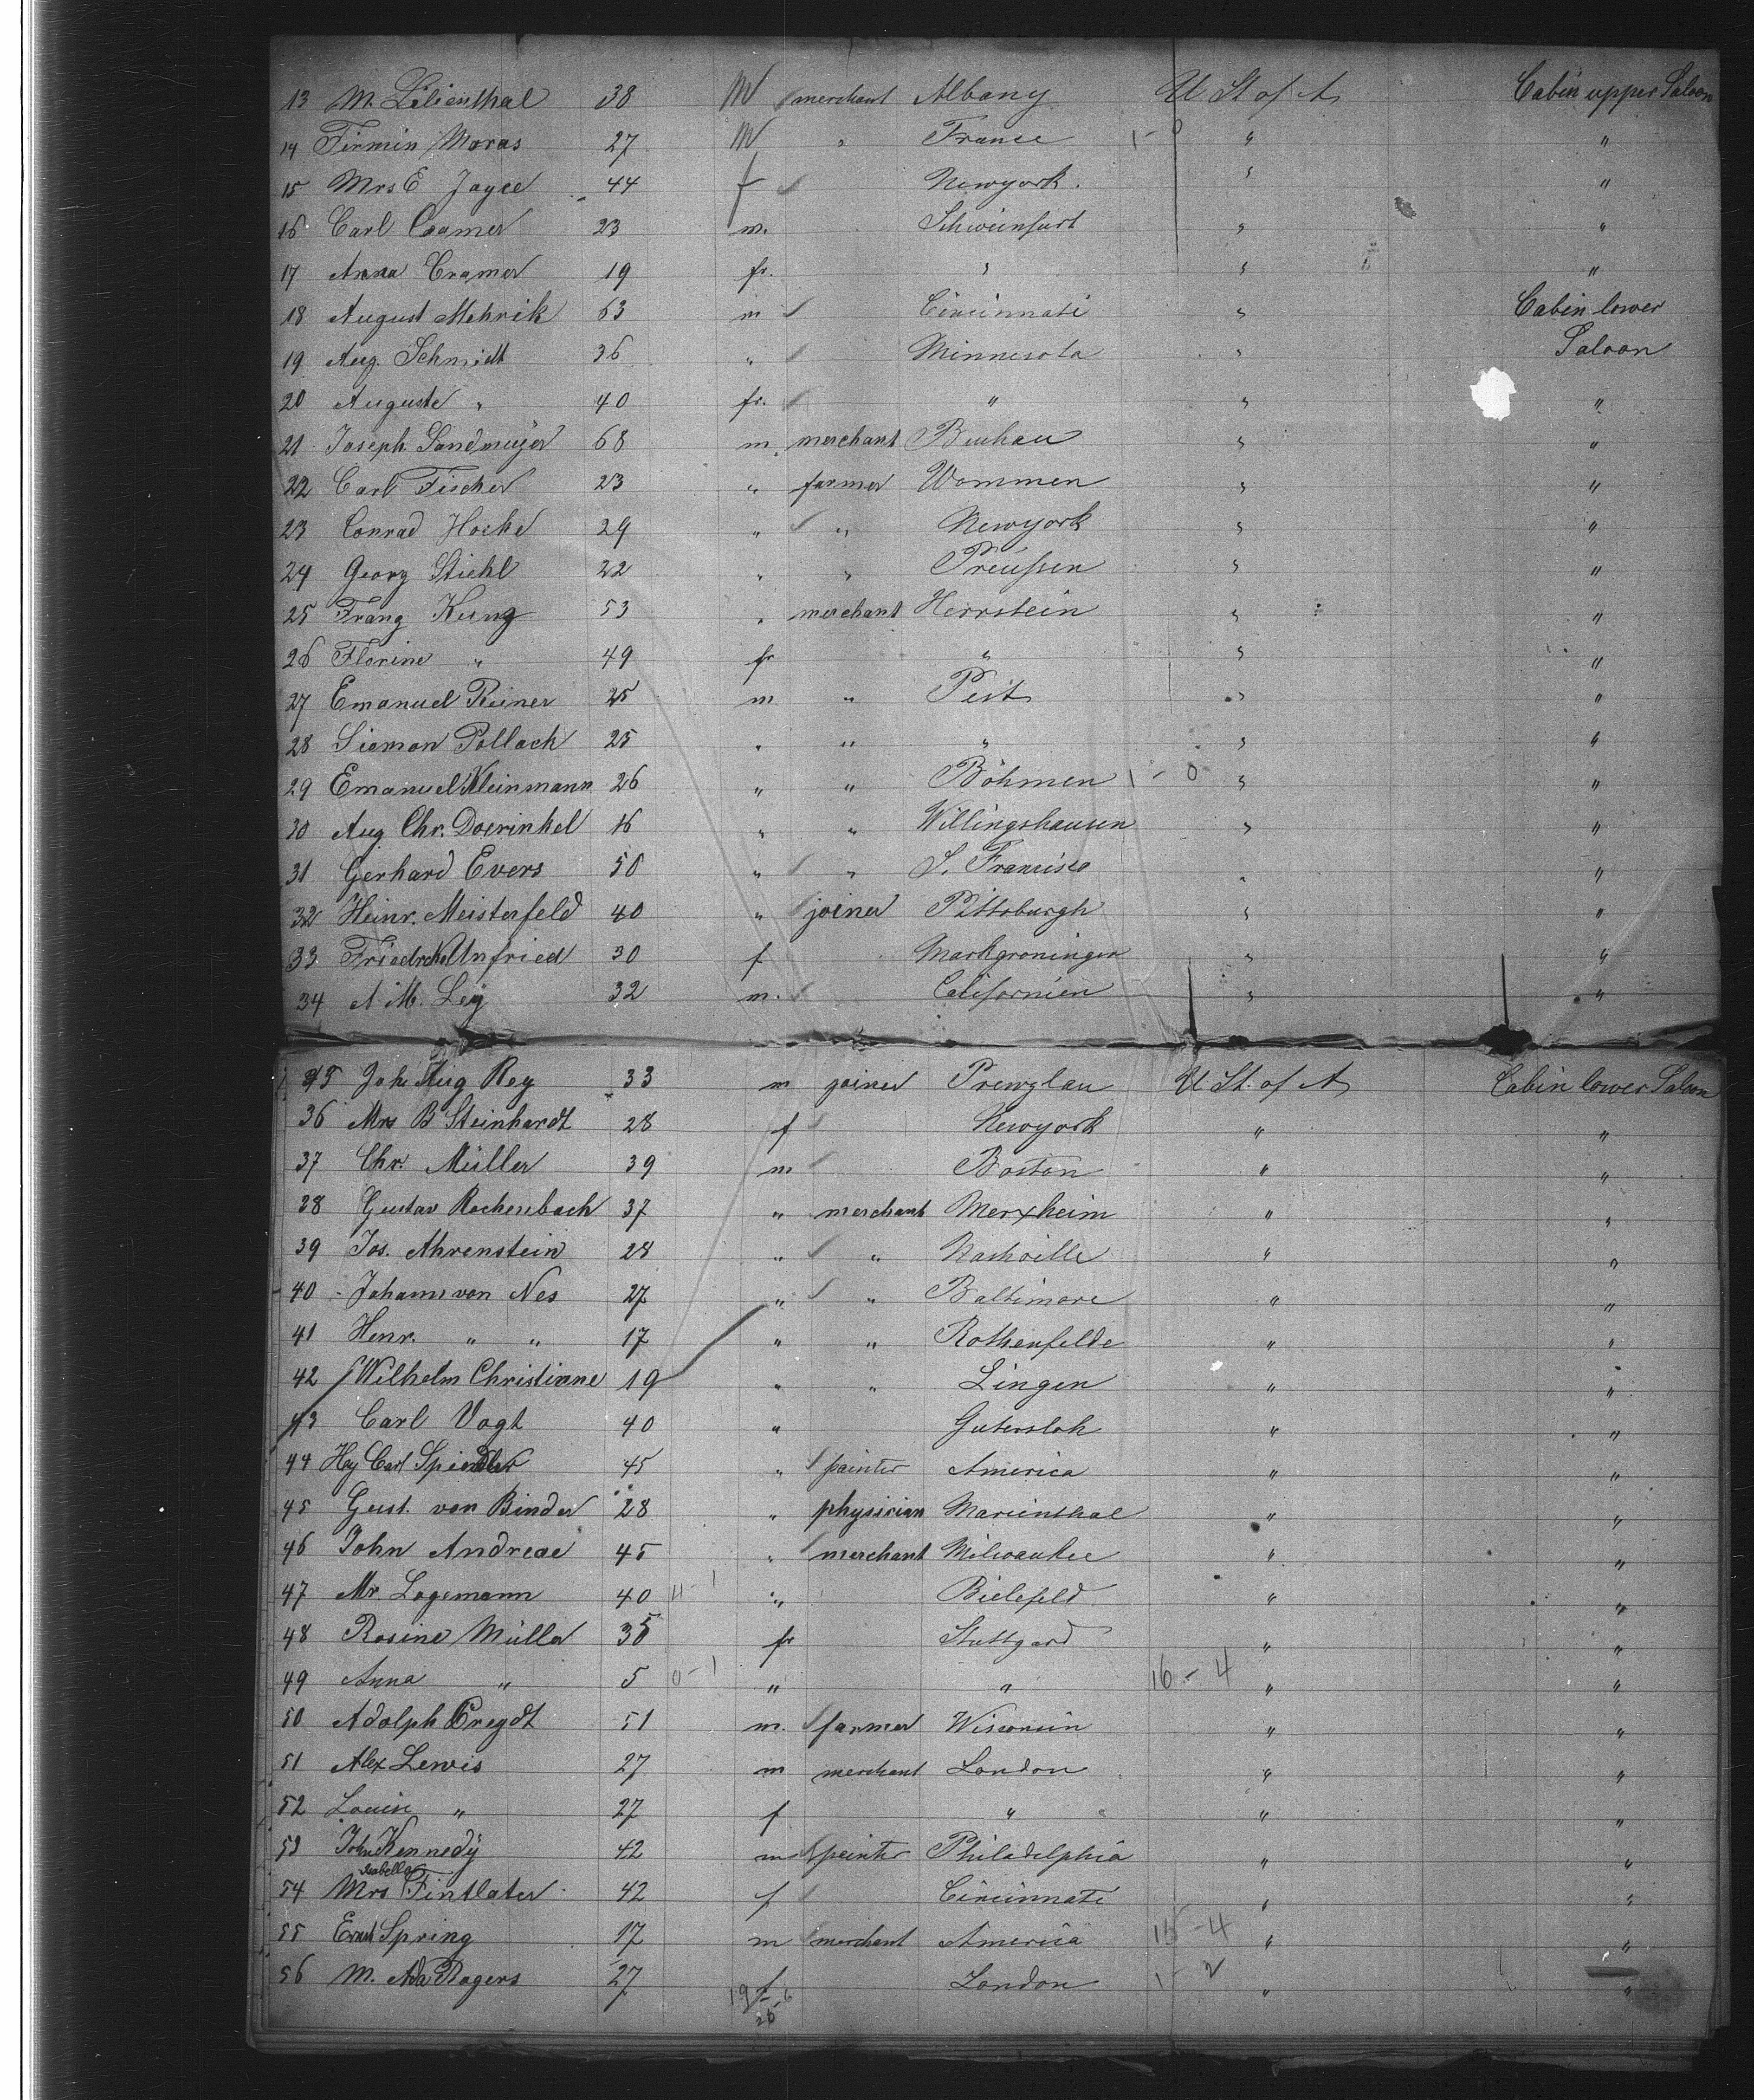 13 M. Lilienthal 38 M merchant Albany U St. of A. Cabin upper Saloon
14 Firmin Moras 27 M " France 1-0 " "
15 Mrs E Joyce 44 f Newyork. " "
16 Carl Cramer 23 m. Schweinfurt " "
17 Anna Cramer 19 fr. " " "
18 August Mehrik 63 m Cincinnati " Cabin lower
19 Aug. Schmidt 36 " Minnesota " Saloon
20 Auguste " 40 fr. " " "
21 Joseph Sandmeijer 68 m. merchant " "
22 Carl Fischer 23 " farmer Wommen " "
23 Conrad Hocke 29 " " Newyork " "
24 Georg Stiehl 22 " " Preußen " "
25 Franz Kunz 53 " merchant Herrstein " "
26 Florine " 49 fr " " "
27 Emanuel Reiner 25 m " Pest " "
28 Siemon Pollack 25 " " " " "
29 Emanuel Kleinmann 26 " " Böhmen 1-0 " "
30 Aug Chr. Doerinkel 16 " " Willingshausen " "
31 Gerhard Evers 50 " " S. Francisco " "
32 Heinr. Meisterfeld 40 " joiner Pittsburgh " "
33 Friedrcke Unfried 30 f Markgroningen " "
34 A. M. Ley 32 m. Californien " "
35 Joh Aug Rey 33 m joiner Prenzlau U St. of A Cabin lower Saloon
36 Mrs B Steinhardt 28 f Newyork " "
37 Chr. Müller 39 m Boston " "
38 Gustav Rochenbach 37 " merchant Merxheim " "
39 Jos. Ahrenstein 28 " " Nashville " "
40 Johann von Nes 27 " " Baltimore " "
41 Henr. " " 17 " " Rothenfelde " "
42 Wilhelm Christianne 19 " " Lingen " "
43 Carl Vogt 40 " Gutersloh " "
44 Hy Carl Spindler 45 " painter America " "
45 Gust. von Binder 28 " physician Marienthal " "
46 John Andreae 45 " merchant Milwaukee " "
47 Mr. Logemann 40 " Bielefeld " "
48 Rosine Müller 35 fr Stuttgard " "
49 Anna " 5 0-1 " " 16-4 " "
50 Adolph Bregdt 51 m. farmer Wisconsin " "
51 Alex Lewis 27 m merchant London " "
52 Louise " 27 f " " "
53 John Kennedy 42 m painter Philadelphia " "
Isabella
54 Mrs Fintlater 42 f Cincinnati " "
55 Ernst Spring 17 m merchant America 15-4 " "
56 M. Ada Rogers 27 f London 1-2 " "